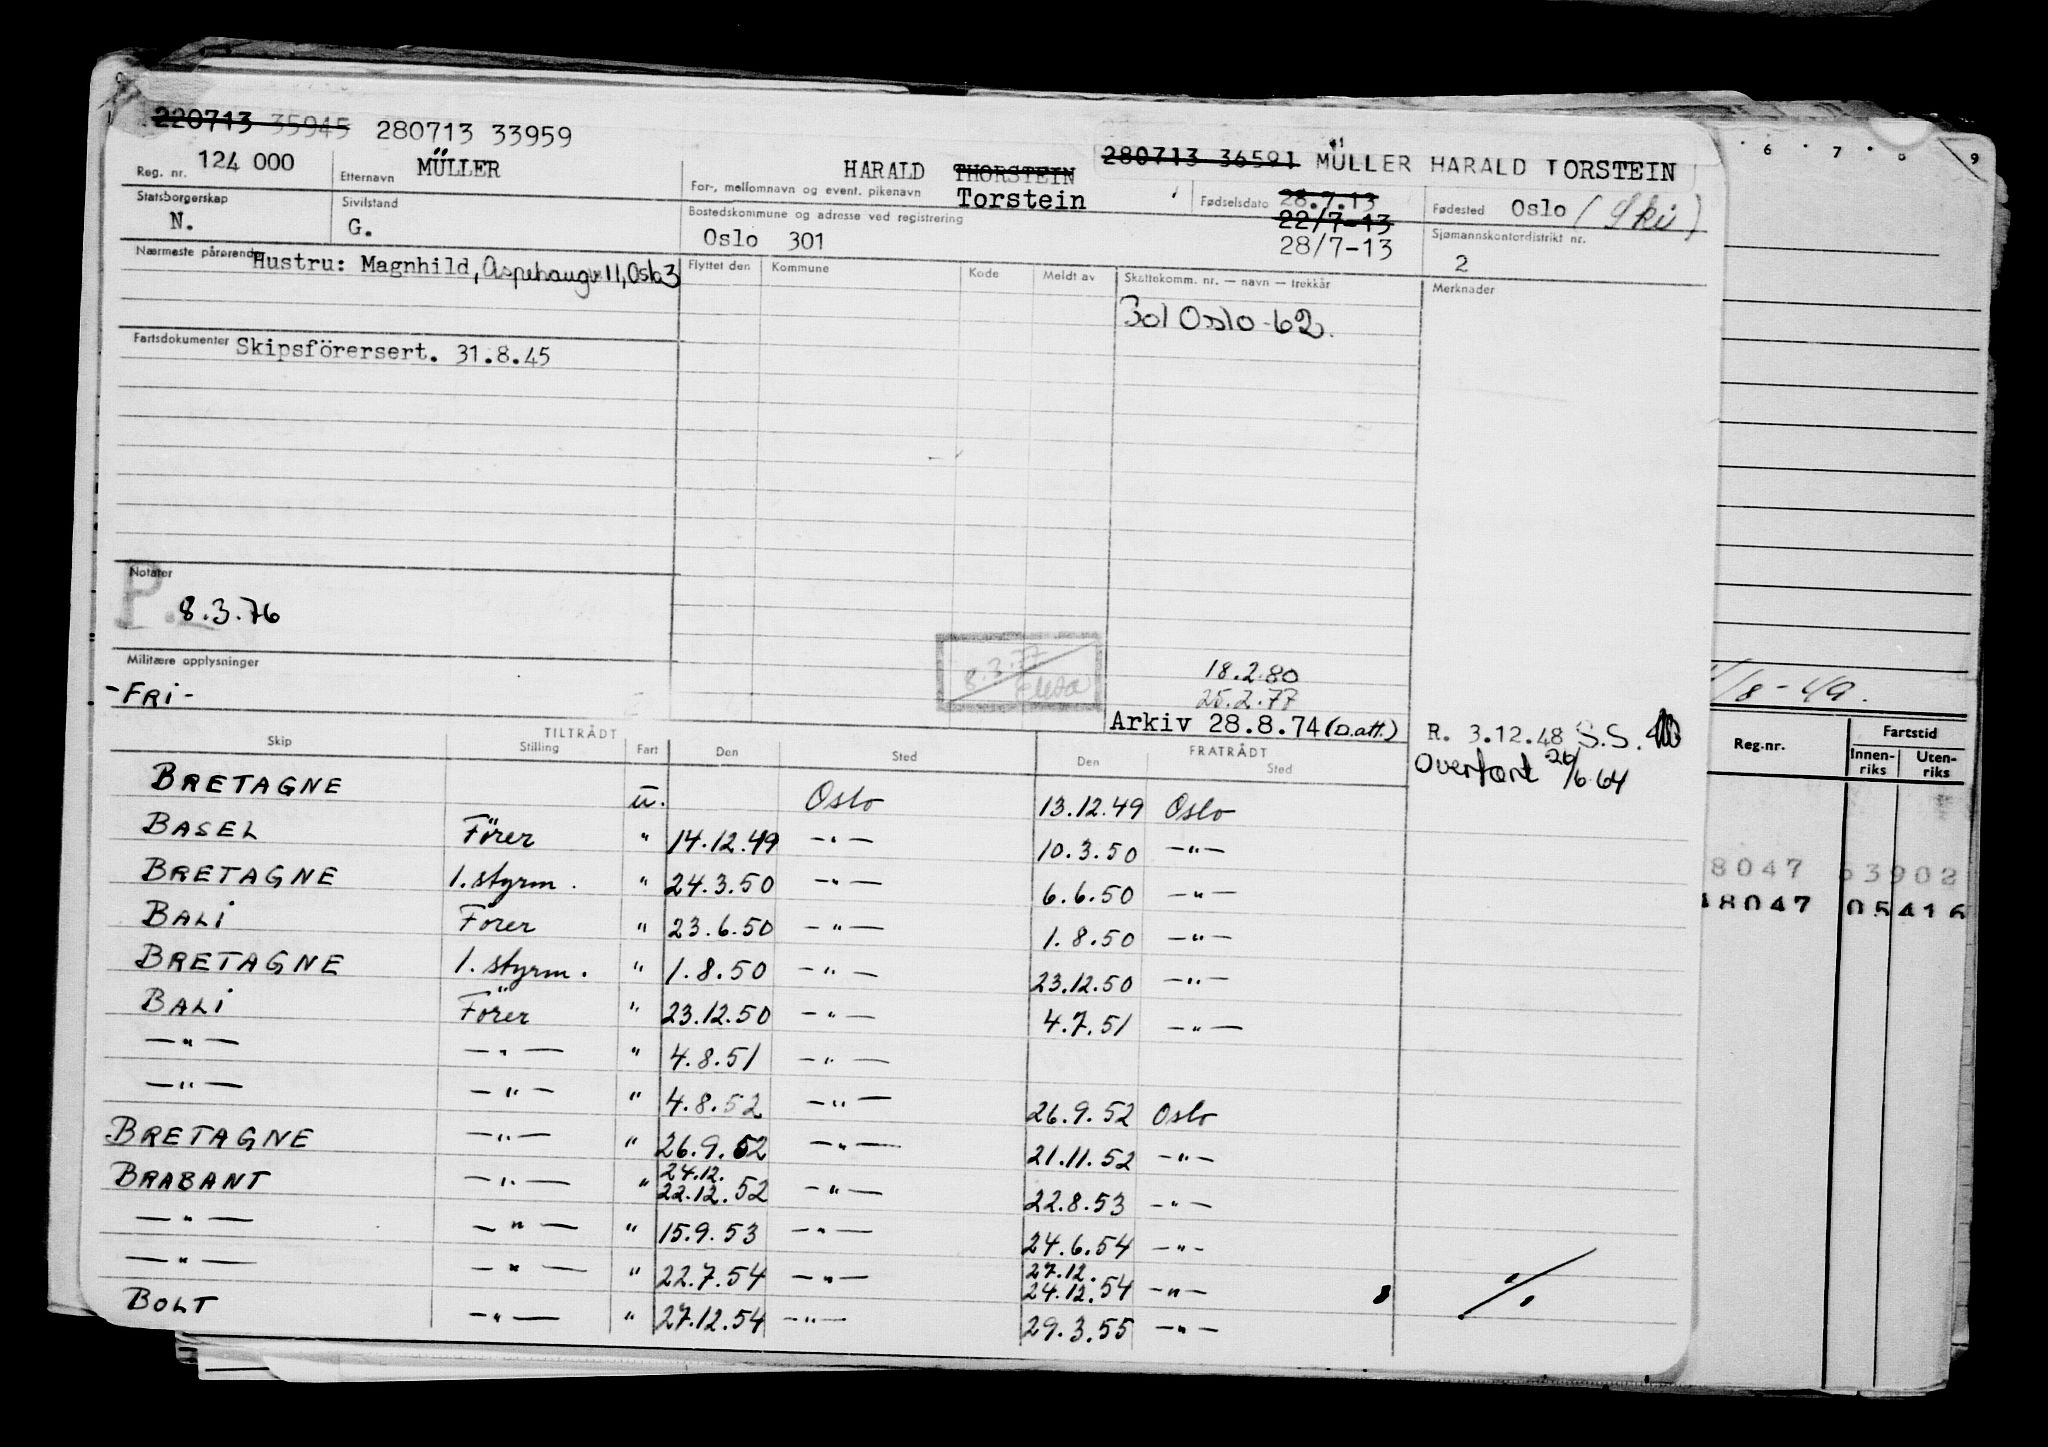 220713 35945 280713 33959
280713 36591 MÜLLER HARALD TORSTEIN
Reg. nr. 124 000 Etternavn MÜLLER For-, mellomnavn og event. pikenavn HARALD THORSTEIN Torstein Fødselsdato 28.7.13 22/7-13 28/7-13 Fødested Oslo (Ski)
Statsborgerskap N. Sivilstand G. Bostedskommune og adresse ved registrering Oslo 301 Sjømannskontordistrikt nr. 2
Nærmeste pårørende Hustru: Magnhild, Aspehaugv 11, Oslo 3 Flyttet den Kommune Kode Meldt av Skattekomm. nr. — navn — trekkår Merknader
301 Oslo - 62.
Fartsdokumenter Skipsförersert. 31.8.45
Notater
P. 8.3.76
Militære opplysninger
-FRI-
8.3.77
18.2.80
25.2.77
Arkiv 28.8.74 (D.att.) R. 3.12.48 S.S.
Overført 26/6 64
TILTRÅDT FRATRÅDT
Skip Stilling Fart Den Sted Den Sted
BRETAGNE u. Oslo 13.12.49 Oslo
BASEL Förer " 14.12.49 —"— 10.3.50 —"—
BRETAGNE 1. styrm. " 24.3.50 —"— 6.6.50 —"—
BALI Förer " 23.6.50 —"— 1.8.50 —"—
BRETAGNE 1. styrm. " 1.8.50 —"— 23.12.50 —"—
BALI Förer " 23.12.50 —"— 4.7.51 —"—
—"— —"— " 4.8.51 —"—
—"— —"— " 4.8.52 —"— 26.9.52 Oslo
BRETAGNE —"— " 26.9.52 —"— 21.11.52 —"—
BRABANT —"— " 24.12. 22.12.52 —"— 22.8.53 —"—
—"— —"— " 15.9.53 —"— 24.6.54 —"—
—"— —"— " 22.7.54 —"— 27.12. 24.12.54 —"—
BOLT —"— " 27.12.54 —"— 29.3.55 —"—
6 7 8 9
/8-49.
Reg.nr. Fartstid
Innenriks Utenriks
8047 63902
18047 05416